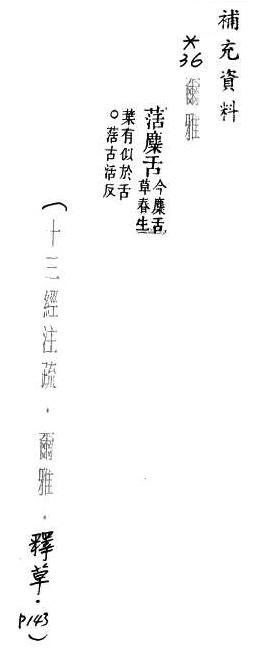 補充資料
*36 爾雅
萿麋舌今麋舌
草春生
葉有似於舌
○萿古活反
(十三經注疏.爾雅.釋草.P143)